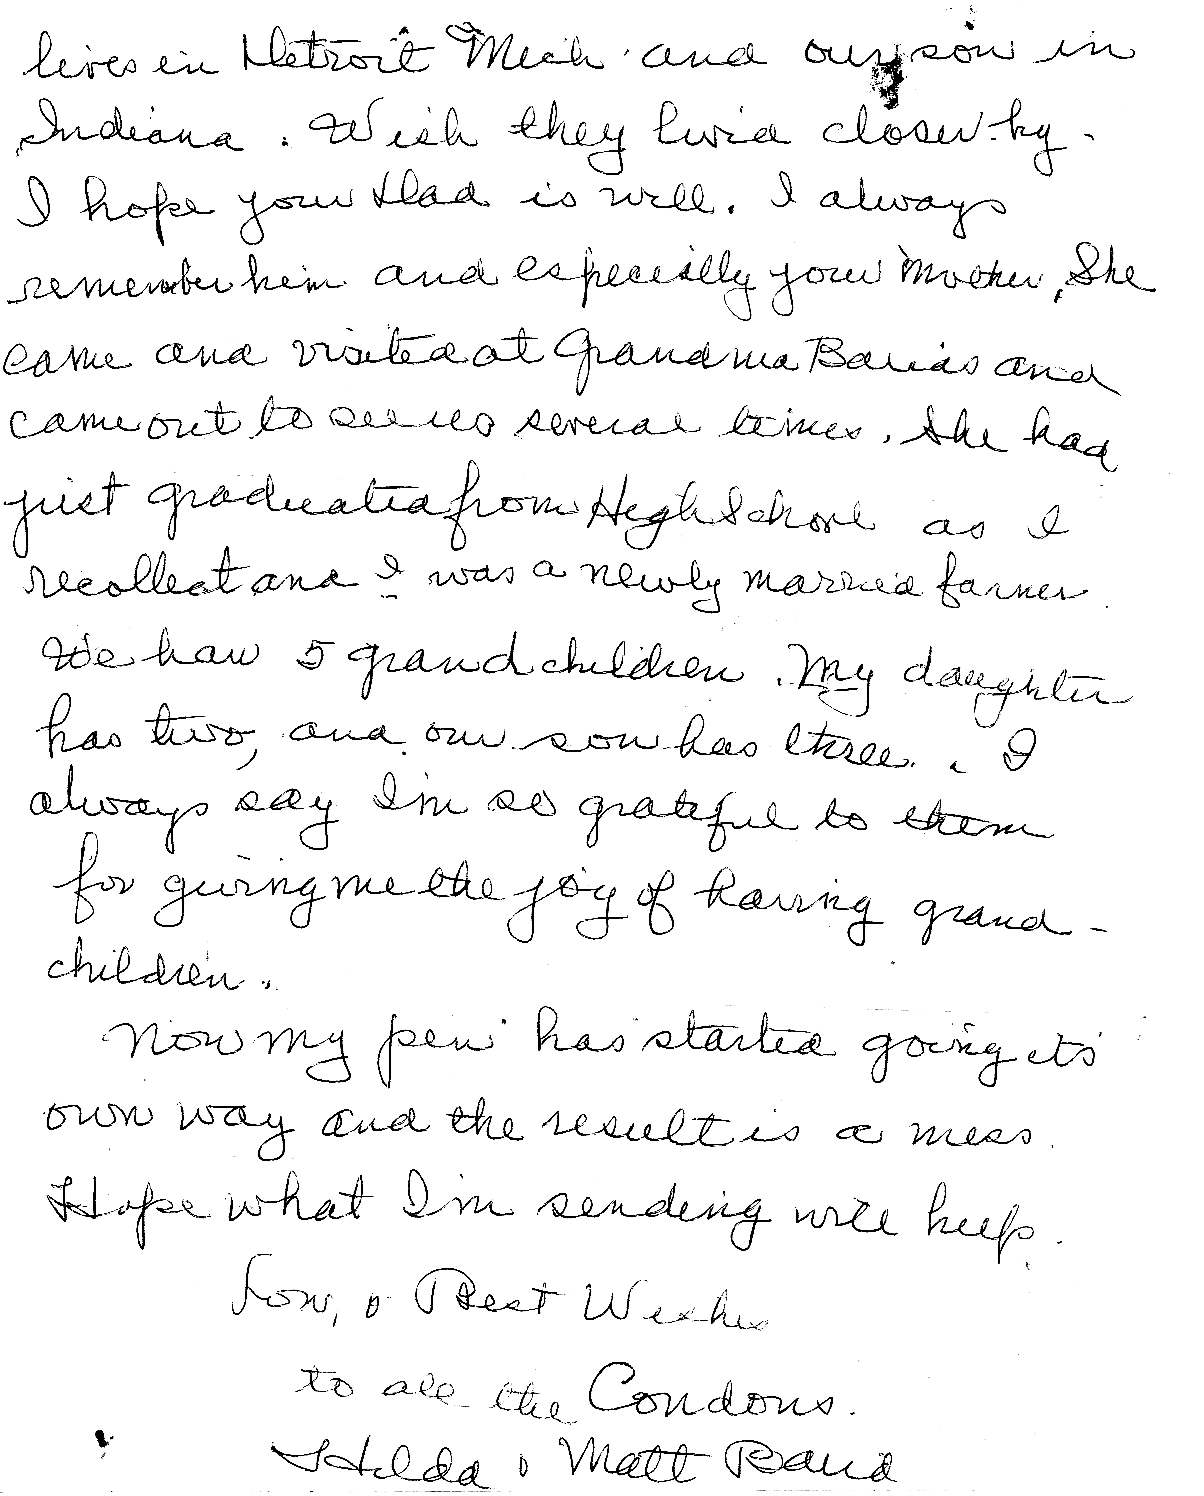 lives in Detroit Mich. and our son in
Indiana. Wish they lived closer by.
I hope your Dad is well. I always
remember him and especially your Mother, She
came and visited at Grandma Baua's and
came out to see us several times. She had
just graduated from High School as I
recollect and I was a newly married farmer
We have 5 grandchildren. My daughter
has two, and our son has three. I
always say I'm so grateful to them
for giving me the joy of having grand-
children.
Now my pen has started going its
own way and the result is a mess.
Hope what I'm sending will help.
Love, & Best Wishes
to all the Condons.
Hilda & Matt